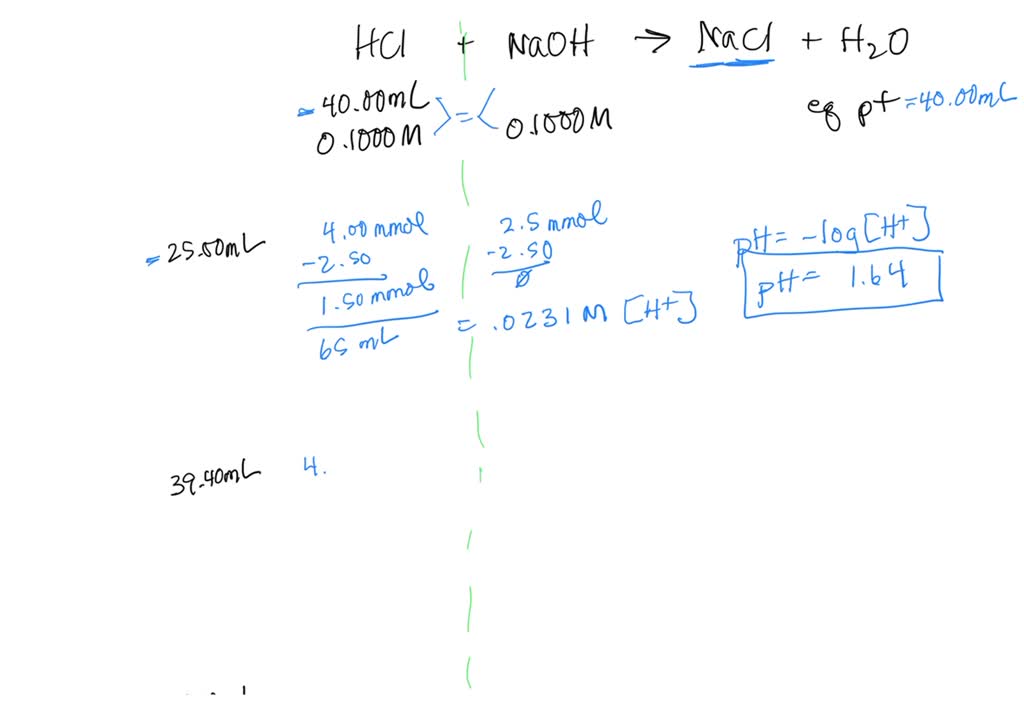 HCl + NaOH → NaCl + H₂O
40.00mL
0.1000M > = < 0.1000M
eq pt = 40.00mL
25.00mL
4.00 mmol
-2.50
1.50 mmol
65 mL
2.5 mmol
-2.50
0
= .0231 M [H+]
pH = -log[H+]
pH = 1.64
39.40mL 4.